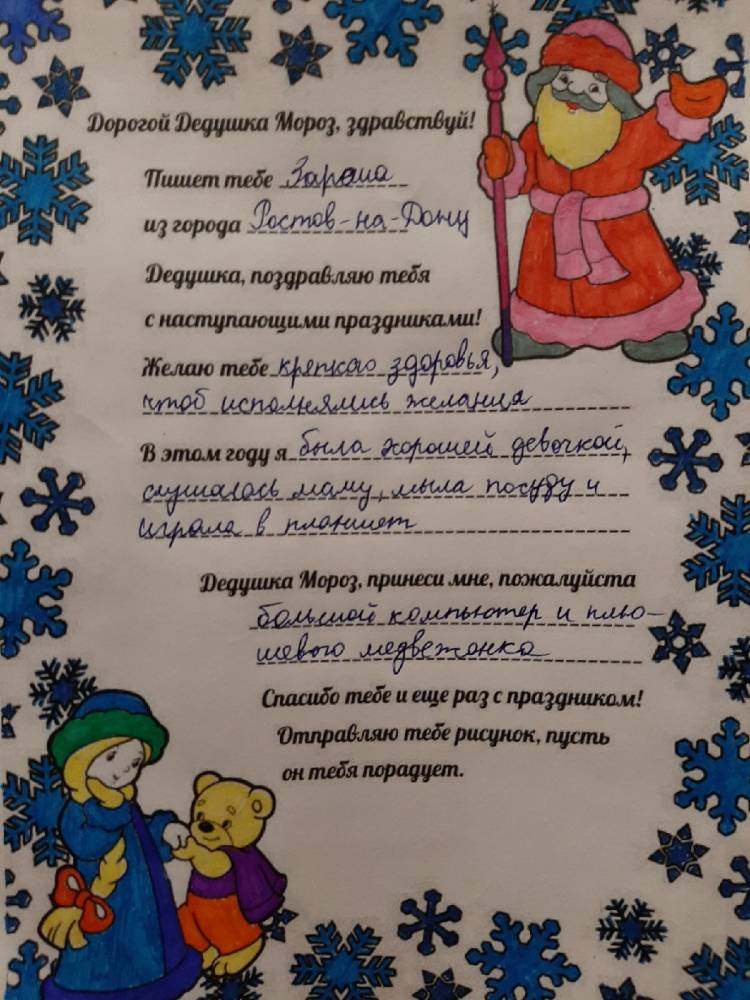 Дорогой Дедушка Мороз, здравствуй!
Пишет тебе Зарема
из города Ростов-на-Дону
Дедушка, поздравляю тебя
с наступающими праздниками!
Желаю тебе крепкого здоровья,
чтоб исполнялись желания
В этом году я была хорошей девочкой,
слушалась маму, мыла посуду и
играла в планшет
Дедушка Мороз, принеси мне, пожалуйста
большой компьютер и плю-
шевого медвежонка
Спасибо тебе и еще раз с праздником!
Отправляю тебе рисунок, пусть
он тебя порадует.